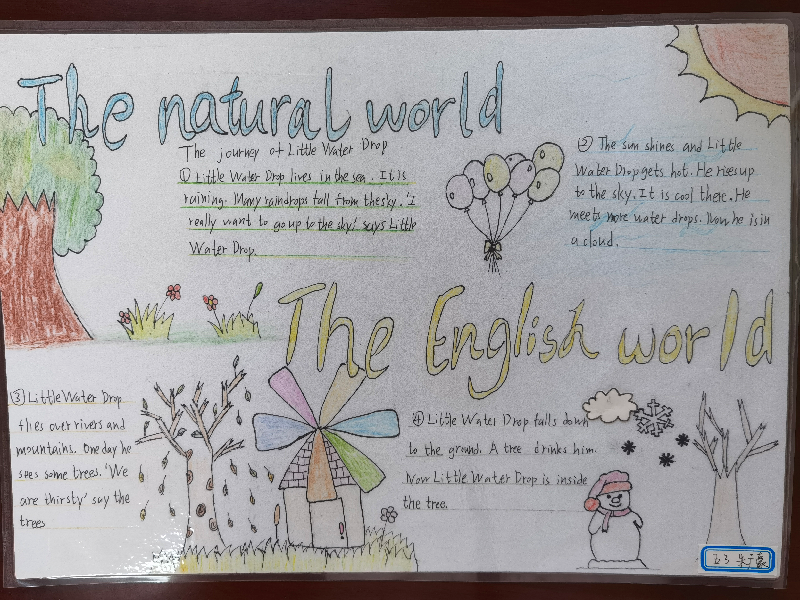 The natural world
The journey of Little Water Drop
① Little Water Drop lives in the sea. It is
raining. Many raindrops fall from the sky. 'I
really want to go up to the sky!' says Little
Water Drop.
② The sun shines and Little
Water Drop gets hot. He rises up
to the sky. It is cool there. He
meets more water drops. Now he is in
a cloud.
The English world
③ Little Water Drop
flies over rivers and
mountains. One day he
sees some trees. 'We
are thirsty' say the
trees
④ Little Water Drop falls down
to the ground. A tree drinks him.
Now Little Water Drop is inside
the tree.